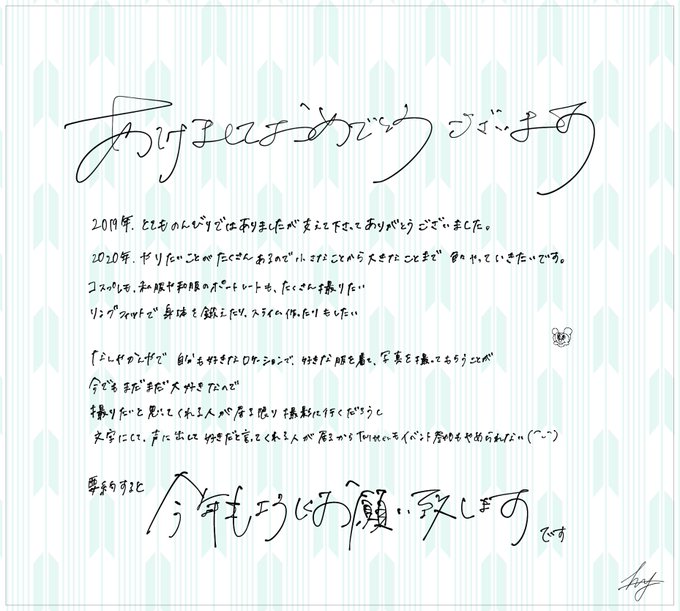 あけましておめでとうございます
2019年、とてものんびりではありましたが支えて下さってありがとうございました。
2020年、やりたいことがたくさんあるので小さなことから大きなことまで色々やっていきたいです。
コスプレも、私服や和服のポートレートも、たくさん撮りたい
リングフィットで身体を鍛えたり、スライム作ったりもしたい
なんやかんやで自分も好きなロケーションで、好きな服を着て、写真を撮ってもらうことが
今でもまだまだ大好きなので
撮りたいと思ってくれる人が居る限り撮影に行くだろうし
文字にして、声に出して好きだと言ってくれる人が居るからTwitterもイベント参加もやめられない
要約すると
今年もよろしくお願い致します
です